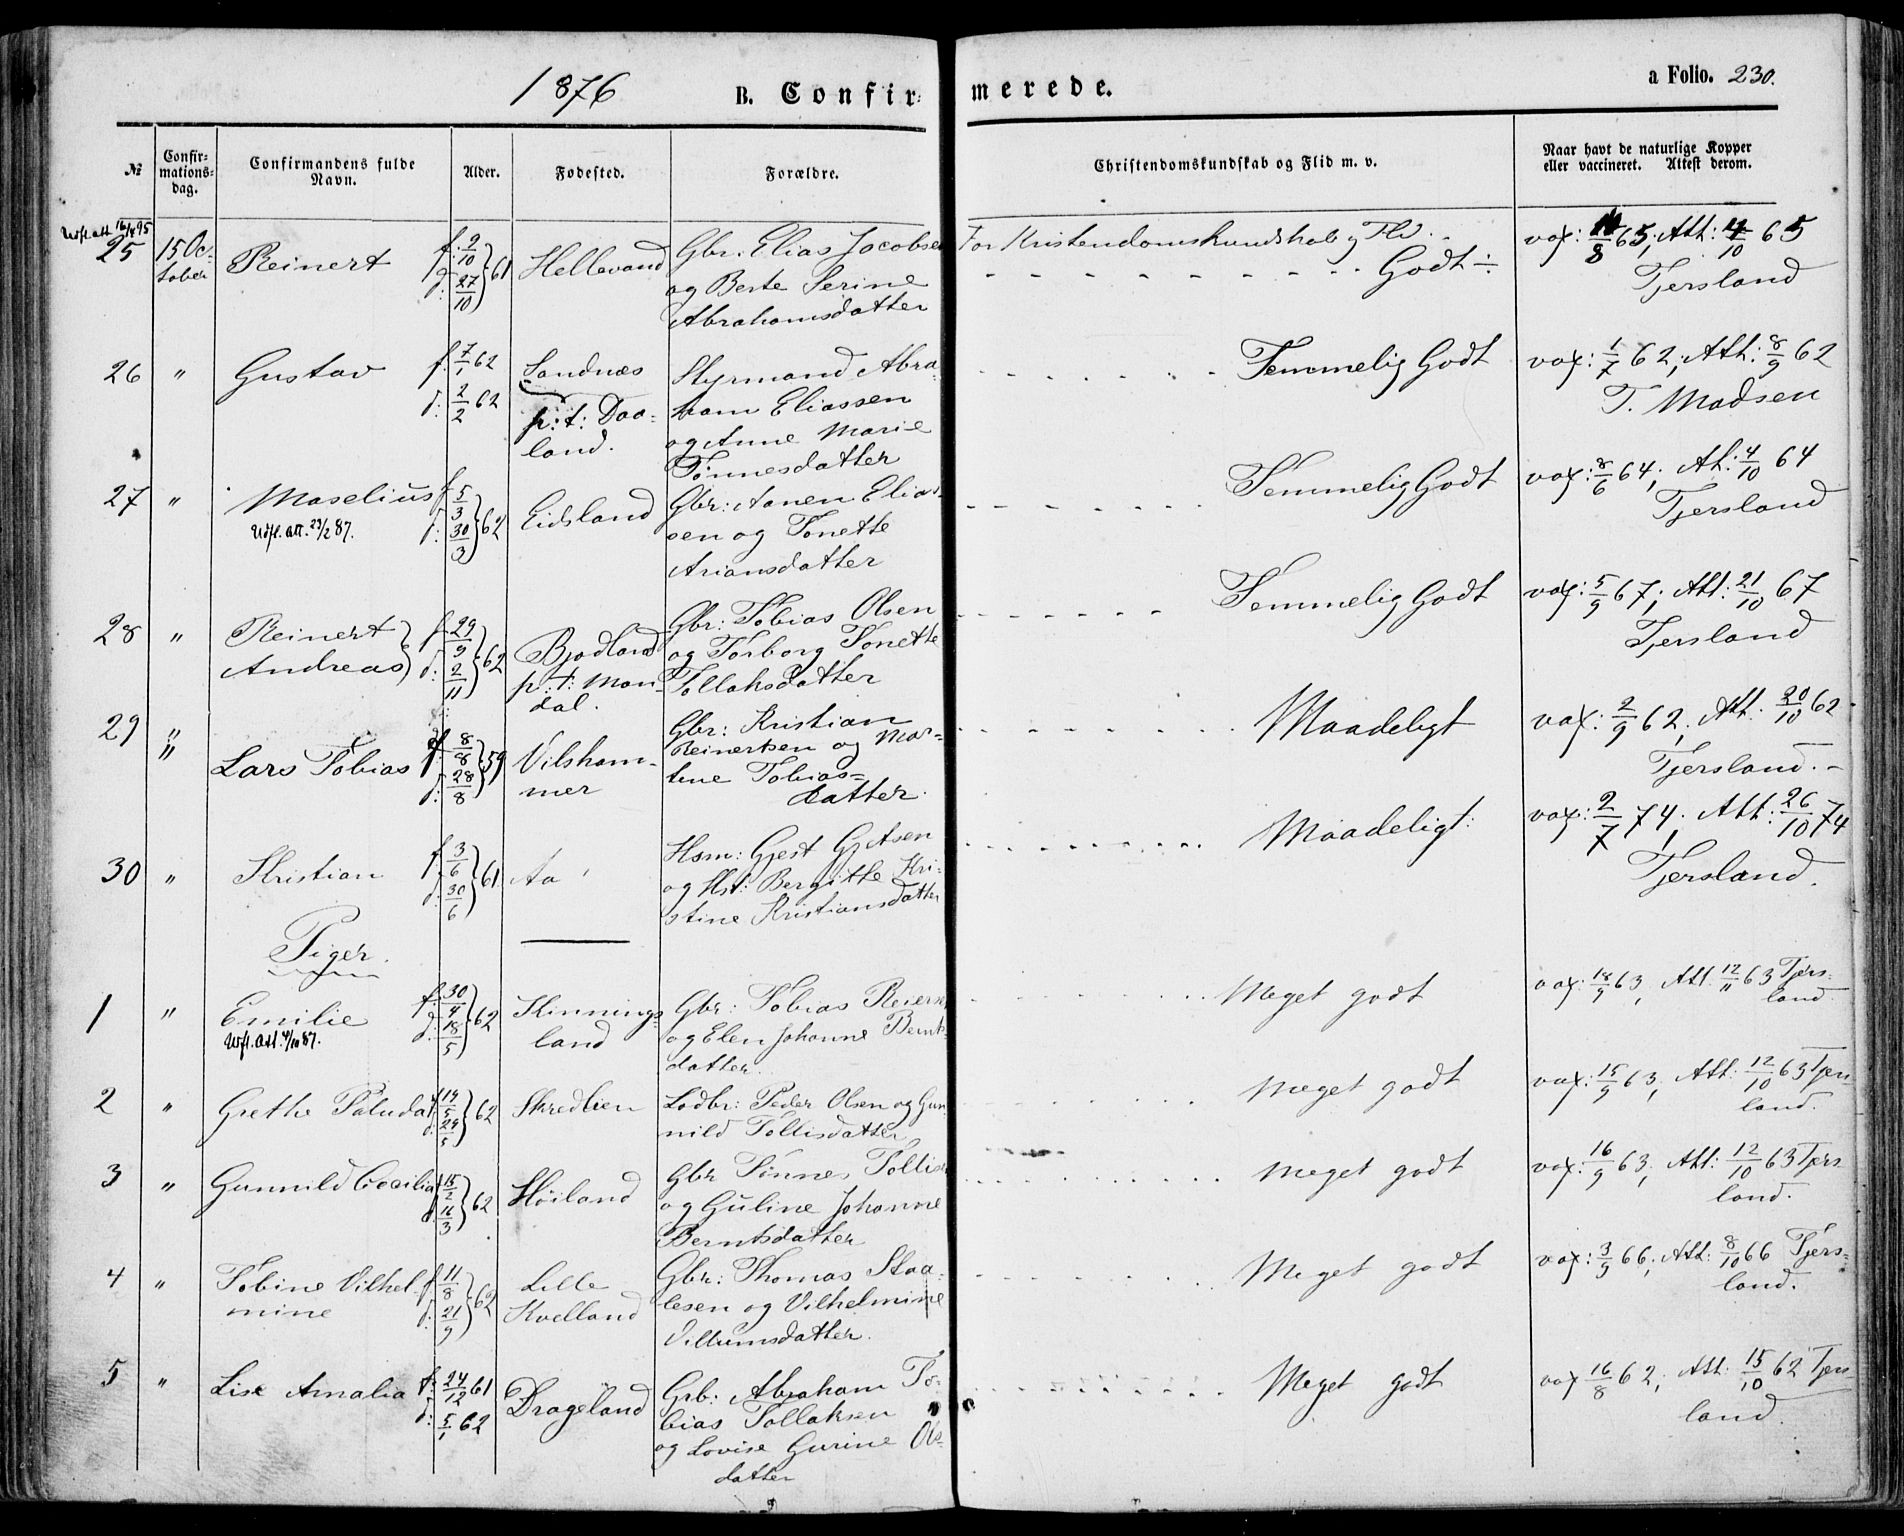 1876 B. Confirmerede. a Folio. 230.
№ Confirmationsdag. Confirmandens fulde Navn. Alder. Fødested. Forældre. Christendomskundskab og Flid m. v. Naar havt de naturlige Kopper eller vaccineret. Attest derom.
Udst. att. 16/4 95
25 15 October Reinert f. 2/10 d: 27/10 } 61 Hellevand Gbr: Elias Jacobsen og Berte Serine Abrahamsdatter For Kristendomskundskab og Flid. Godt ÷ 65; Att: 4/10 65 Tjersland
26 " Gustav f. 7/1 62 d: 2/2 62 Sandnæs p: t: Daaland. Styrmand Abraham Eliassen og Anne Marie Tønnesdatter Temmelig Godt vax: 1/7 62; Att: 8/9 62 T. Madsen
27 " Maselius f. 5/3 d: 30/3 } 62 Eidsland Gbr: Aanen Eliassen og Tonette Ariansdatter Temmelig Godt vax: 8/6 64; Att: 4/10 64 Tjersland
Udst. att. 23/2 87.
28 " Reinert Andreas f. 29/9 d: 2/11 } 62 Bjodland p: t: Mandal. Gbr: Tobias Olsen og Torborg Tonette Tollaksdatter Temmelig Godt vax: 5/9 67; Att: 21/10 67 Tjersland
29 " " Lars Tobias f. 8/8 d: 28/8 } 59 Vilshammer Gbr: Kristian Reinertsen og Martine Tobiasdatter. Maadeligt vax: 2/9 62; Att: 20/10 62 Tjersland.
30 " Kristian f. 3/6 d: 30/6 } 61 Aa Hsm: Gjest og Hst: Bergitte Kristine Kristiansdatter Maadeligt: vax: 2/7 74; Att: 26/10 74 Tjersland.
Piger.
1 " Emilie f. 30/4 d: 18/5 } 62 Kinningsland Gbr: Tobias Reiersen og Elen Johanne Berntsdatter. Meget godt vax: 18/9 63, Att: 12/11 63 Tjersland.
Udst. att. 4/10 87.
2 " Grethe f. 14/5 d: 29/5 } 62 Skredlien Lodbr: Peder Olsen og Gunnild Tollisdatter Meget godt vax: 15/9 63; Att: 12/10 63 Tjersland.
3 " Gunnild Cecilia f. 15/2 d: 16/3 } 62 Høiland Gbr Tønnes Tollisen og Guline Johanne Berntsdatter Meget godt vax: 16/9 63; Att: 12/10 63 Tjersland.
4 " Tobine Vilhelmine f. 11/8 d: 21/9 } 62 Lille Kvelland Gbr: Thomas Staalesen og Vilhelmine Villumsdatter. Meget godt vax: 3/9 66; Att: 8/10 66 Tjersland.
5 " Lise Amalia f. 24/12 61 d: 5/1 62 Drageland Grb: Abraham Tobias Tollaksen og Lovise Gurine Olsdatter Meget godt vax 16/8 62; Att: 15/10 62 Tjersland.